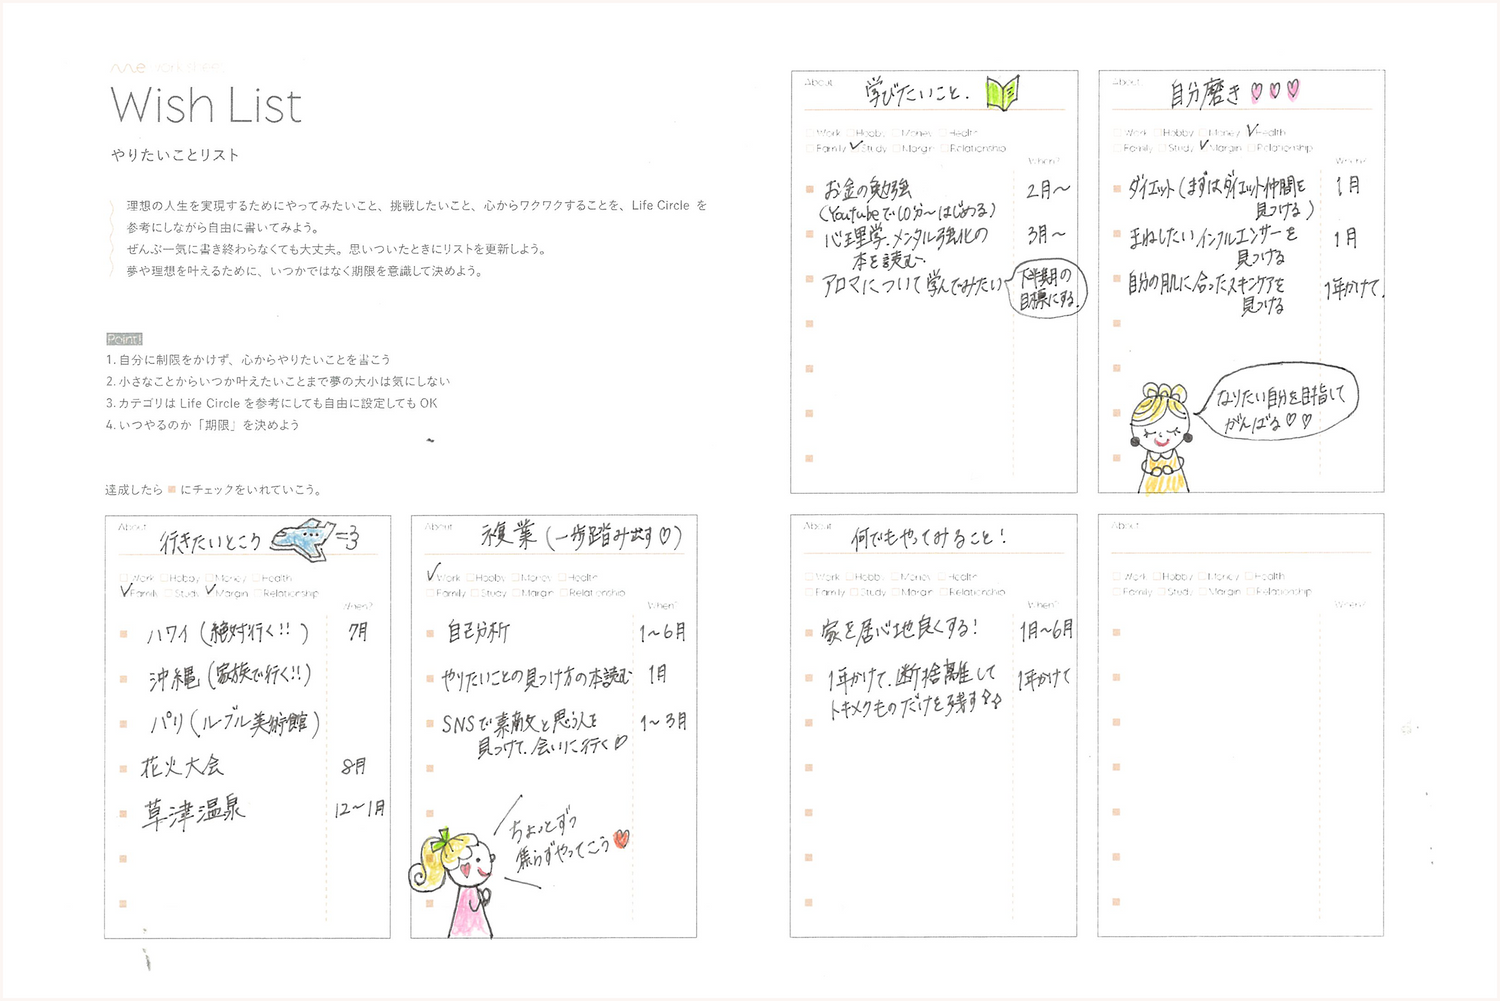 me work sheet
Wish List
やりたいことリスト
理想の人生を実現するためにやってみたいこと、挑戦したいこと、心からワクワクすることを、Life Circle を
参考にしながら自由に書いてみよう。
ぜんぶ一気に書き終わらなくても大丈夫。思いついたときにリストを更新しよう。
夢や理想を叶えるために、いつかではなく期限を意識して決めよう。
Point!
1. 自分に制限をかけず、心からやりたいことを書こう
2. 小さなことからいつか叶えたいことまで夢の大小は気にしない
3. カテゴリは Life Circle を参考にしても自由に設定しても OK
4. いつやるのか「期限」を決めよう
達成したら ■ にチェックをいれていこう。
About 行きたいところ =3
Work Hobby Money Health
✓Family Study ✓Margin Relationship
When?
ハワイ (絶対行く!!) 7月
沖縄 (家族で行く!!)
パリ (ルーブル美術館)
花火大会 8月
草津温泉 12〜1月
About 複業 (一歩踏み出す♡)
✓Work Hobby Money Health
Family Study Margin Relationship
When?
自己分析 1〜6月
やりたいことの見つけ方の本読む 1月
SNSで素敵と思う人を 1〜3月
見つけて、会いに行く♡
ちょっとずつ
焦らずやってこう
About 学びたいこと.
Work Hobby Money Health
Family ✓Study Margin Relationship
When?
お金の勉強 2月〜
(Youtubeで10分〜はじめる)
心理学.メンタル強化の 3月〜
本を読む.
アロマについて学んでみたい
下半期の
目標にする.
About 自分磨き ♡♡♡
Work Hobby Money ✓Health
Family Study ✓Margin Relationship
When?
ダイエット(まずはダイエット仲間を 1月
見つける)
まねしたいインフルエンサーを 1月
見つける
自分の肌に合ったスキンケアを 1年かけて.
見つける
なりたい自分を目指して
がんばる♡♡
About 何でもやってみること!
Work Hobby Money Health
Family Study Margin Relationship
When?
家を居心地良くする! 1月〜6月
1年かけて、断捨離して 1年かけて
トキメクものだけを残す
About
Work Hobby Money Health
Family Study Margin Relationship
When?